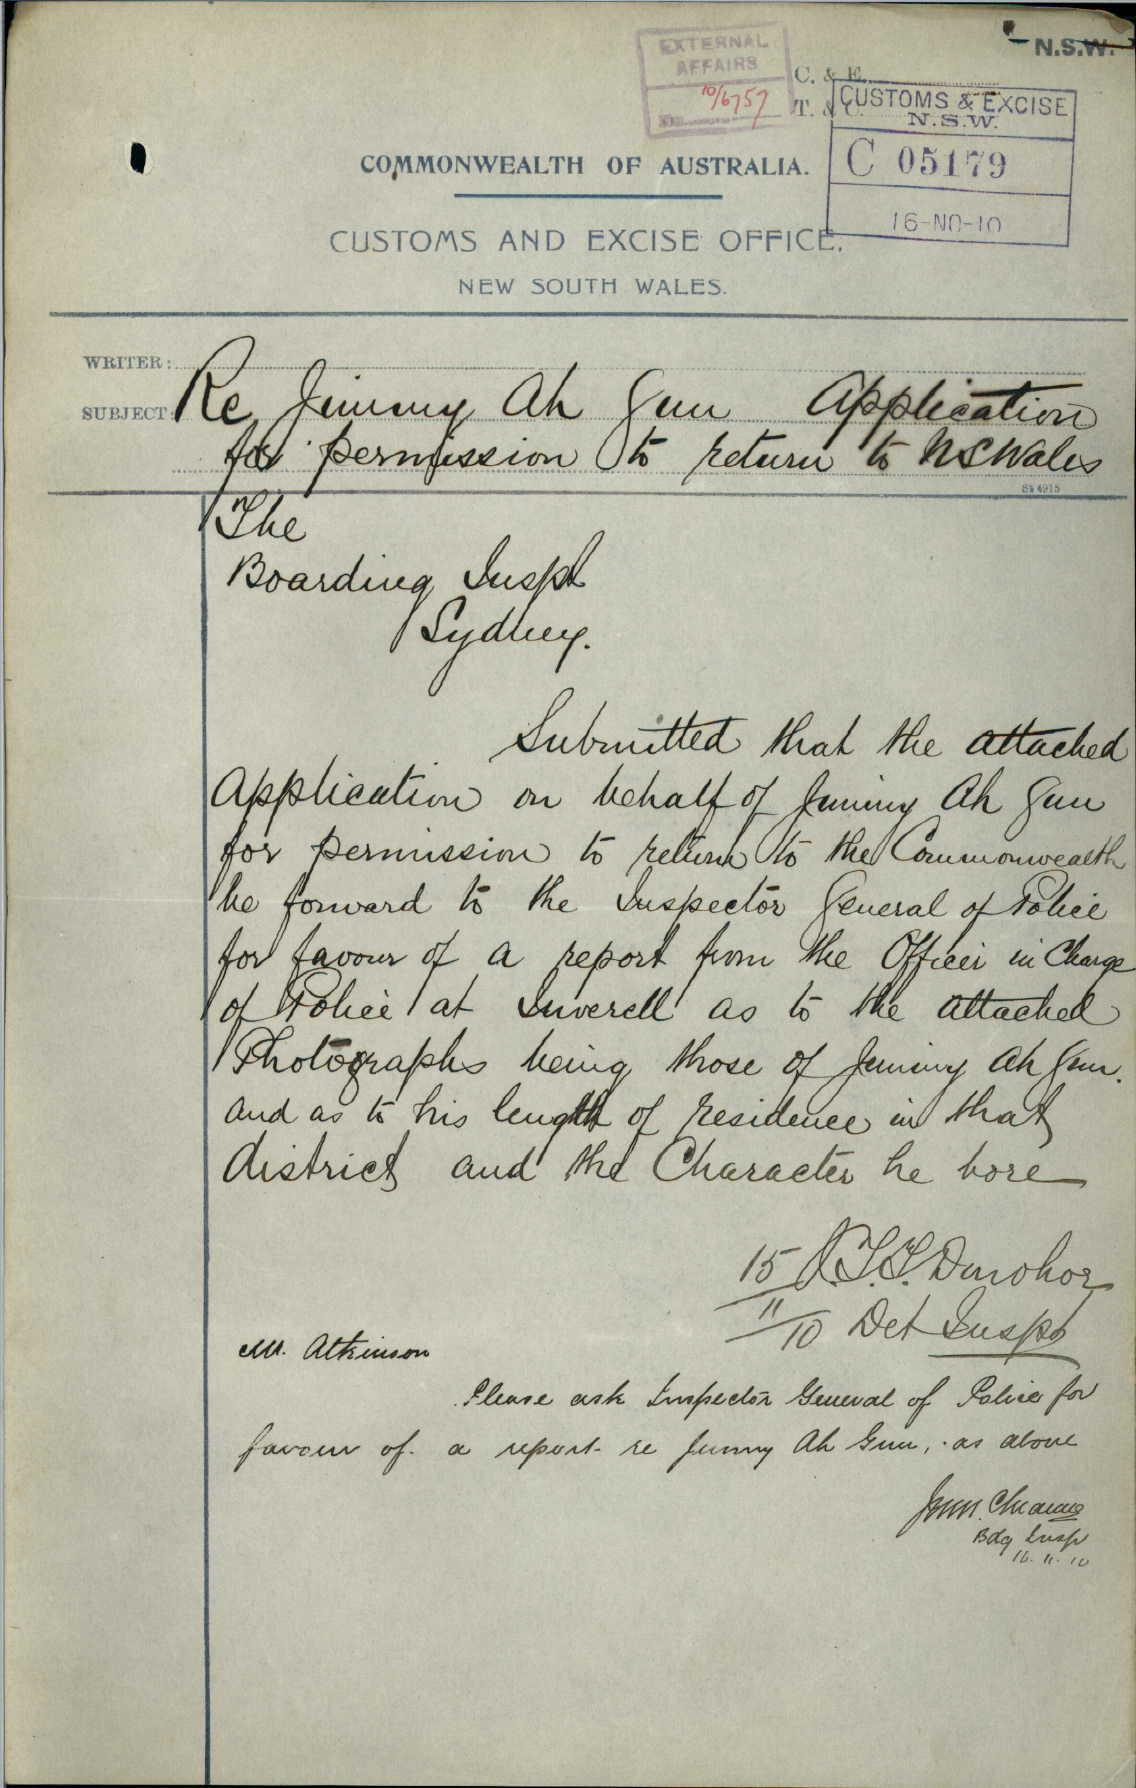 N.S.W.
EXTERNAL
AFFAIRS
10/6757
C. & E.
T. & C.
CUSTOMS & EXCISE
N.S.W.
C 05179
16-NO-10
COMMONWEALTH OF AUSTRALIA.
CUSTOMS AND EXCISE OFFICE.
NEW SOUTH WALES.
WRITER:
SUBJECT: Re Jimmy Ah Gun Application
for permission to return to NSWales
The
Boarding Inspt
Sydney.
Submitted that the attached
Application on behalf of Jimmy Ah Gun
for permission to return to the Commonwealth
be forward to the Inspector General of Police
for favour of a report from the Officer in Charge
of Police at Inverell as to the attached
Photographs being those of Jimmy Ah Gun.
and as to his length of residence in that
district and the Character he bore
15 J.T.T. Donohoe
11
10 Det Inspt
Mr. Atkinson
Please ask Inspector General of Police for
favour of a report re Jimmy Ah Gun, as above
Bdg Insp
16.11.10